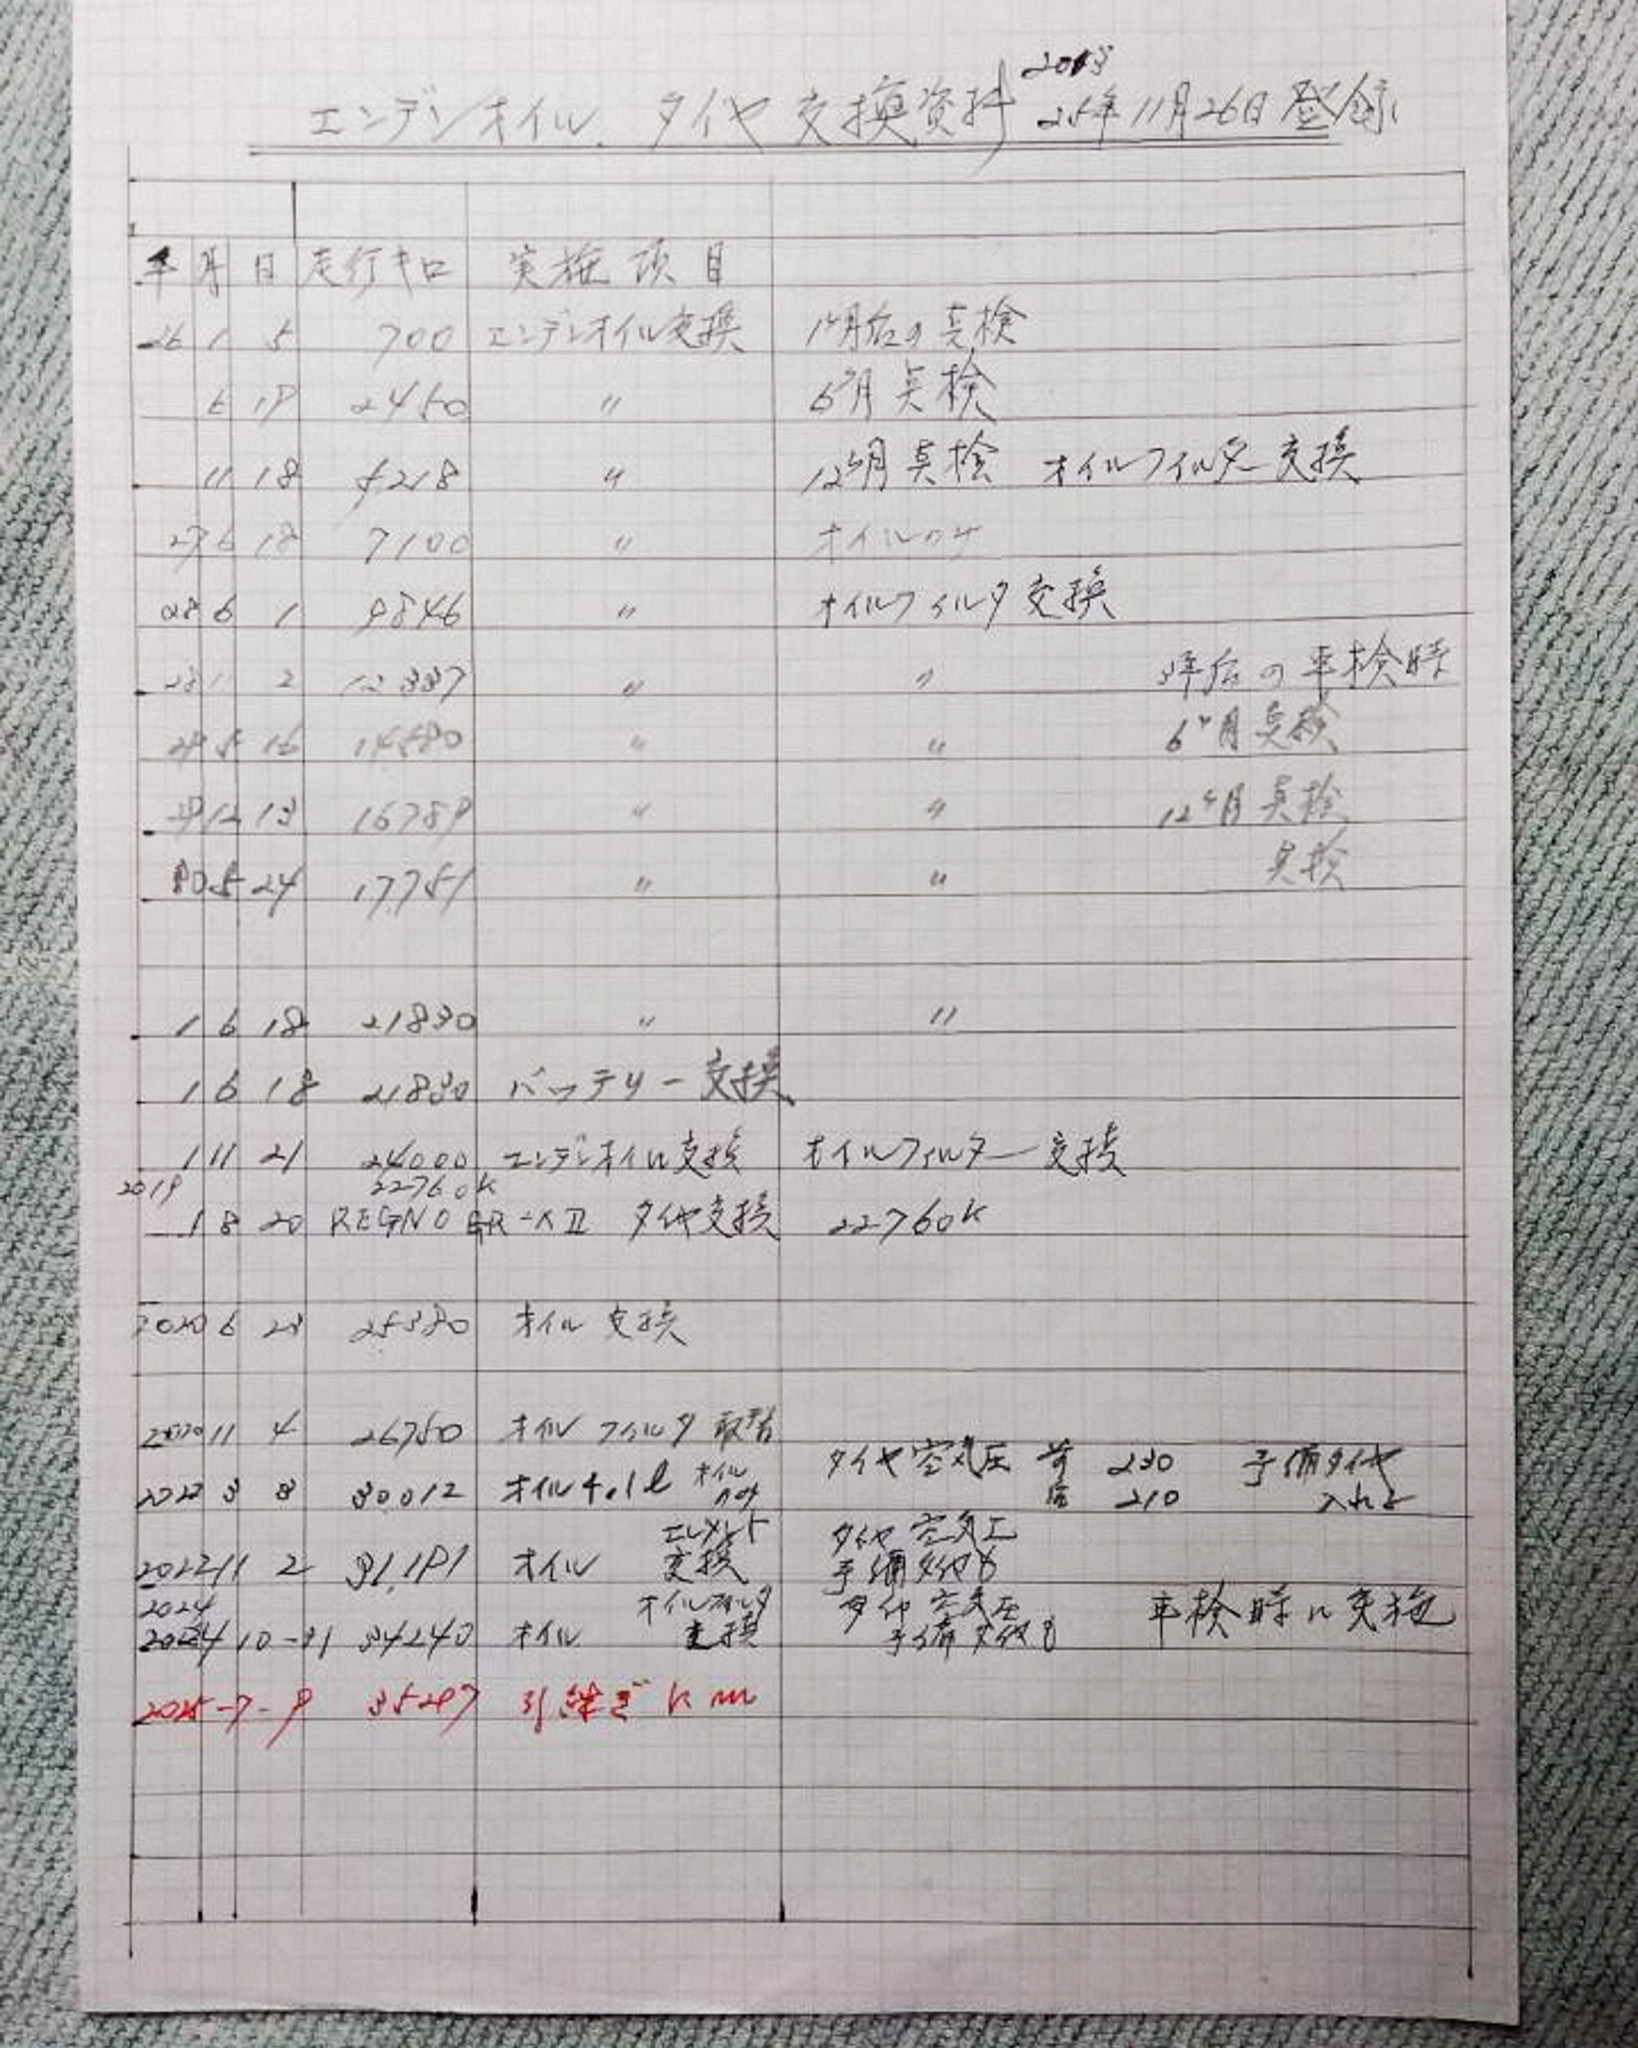 2013
エンヂンオイル、タイヤ交換資料 25年11月26日登録
年 月 日 走行キロ 実施項目
26 1 5 700 エンヂンオイル交換 1ヶ月后の点検
6 19 2450 〃 6ヶ月点検
11 18 4218 〃 12ヶ月点検 オイルフィルター交換
27 6 18 7100 〃 オイルのみ
28 6 1 9846 〃 オイルフィルタ交換
28 11 2 12337 〃 〃 3年后の車検時
29 5 16 14580 〃 〃 6ヶ月点検
29 12 13 16789 〃 〃 12ヶ月点検
30 5 24 17751 〃 〃 点検
1 6 18 21830 〃 〃
1 6 18 21830 バッテリー交換
1 11 21 24000 エンヂンオイル交換 オイルフィルター交換
2019 22760K
1 8 20 REGNO GR-XII タイヤ交換 22760K
2020 6 23 25380 オイル交換
2020 11 4 26750 オイルフィルタ取替
2022 3 8 30,012 オイル4.1l オイルのみ タイヤ空気圧 前 230 后 210 予備タイヤ入れる
2022 11 2 31,191 オイル エレメント交換 タイヤ空気圧 予備タイヤも
2024
2024 10-31 34240 オイル オイルフィルタ交換 タイヤ空気圧 予備タイヤも 車検時に実施
2025-7-9 35297 引継ぎkm